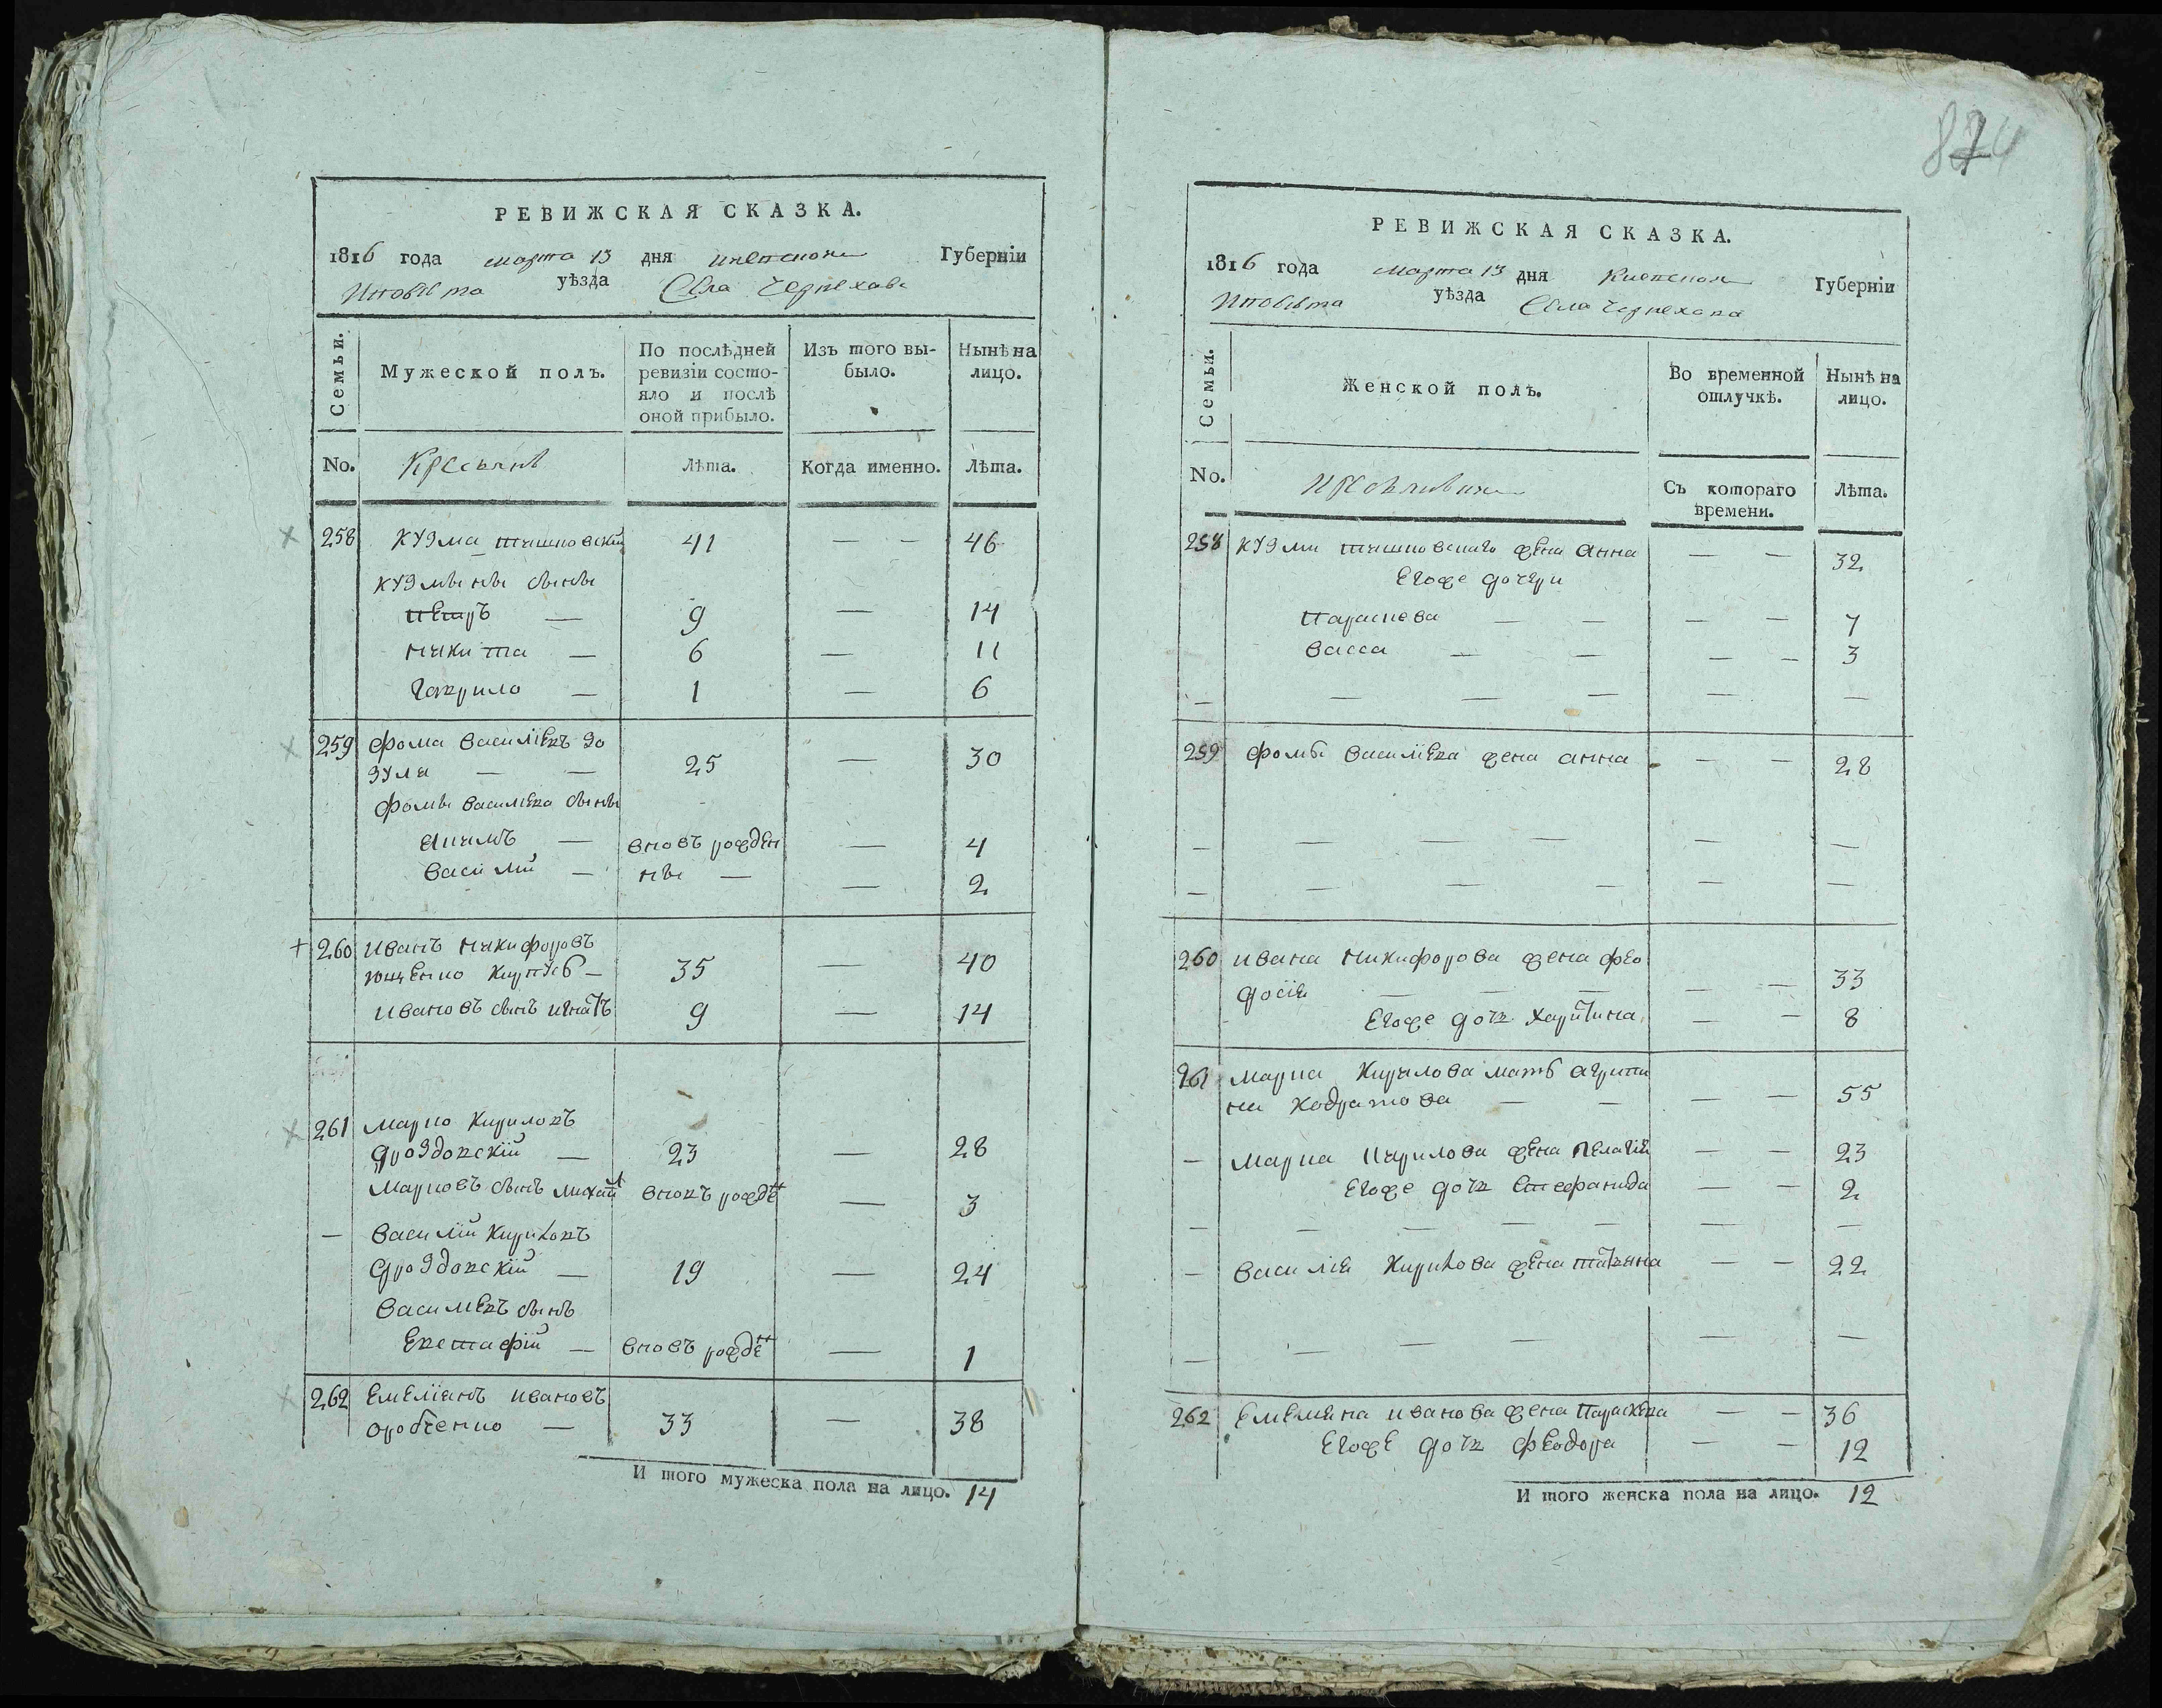 РЕВИЖСКАЯ СКАЗКА.
1816 года марта 13 дня Киевской Губерніи
уѣзда Села Черняхова
Семьи.
Мужеской полъ.
По послѣдней ревизіи состо-
яло и послѣ
оной прибыло.
Изъ того вы-
было.
Нынѣ на
лицо.
No. Крестьянѣ Лѣта. Когда именно. Лѣта.
258 Кузма Тишковскій 41 — — 46
Кузмыны сыны
Петръ — 9 — 14
Никита — 6 — 11
Гаврило — 1 — 6
259 Фома Василіевъ Зо
зуля — — 25 — 30
Фомы Василіева сыны
Якимъ — вновь рожден — 4
Василій — ны — — 2
260 Иванъ Никифоровъ
35 — 40
Ивановъ сынъ Игнатъ 9 — 14
261 Марко Кириловъ
Дроздовскій — 23 — 28
Марковъ сынъ Михайл вновъ рожде — 3
— Василій Кириловъ
Дроздовскій — 19 — 24
Василіевъ сынъ
Евстафій — вновъ рожде — 1
262 Емеліянъ Ивановъ
оробченко — 33 — 38
И того мужеска пола на лицо. 14
824
РЕВИЖСКАЯ СКАЗКА.
1816 года марта 13 дня Киевской Губерніи
уѣзда Села Черняхова
Семьи.
Женской полъ.
Во временной
отлучкѣ.
Нынѣ на
лицо.
No. Съ котораго
времени. Лѣта.
258 Кузми Тишковскаго жена Анна — — 32
Егоже дочери
Параскева — — — — 7
Васса — — — — 3
— — — — — —
259 Фомы Василіева жена Анна — — 28
— — — — — —
— — — — — —
260 Ивана Никифорова жена Фео
досія — — — — — 33
Егоже дочь Харитина — — 8
261 Марка Кирилова мать Агрипи
на Кодратова — — — — 55
— Марка Кирилова жена Пелагія — — 23
Егоже дочь Стефанида — — 2
— — — — — — —
— Василія Кирилова жена Татіяна — — 22
— — — — —
262 Емеліяна Иванова жена Параскева — — 36
Егоже дочь Феодора — — 12
И того женска пола на лицо. 12